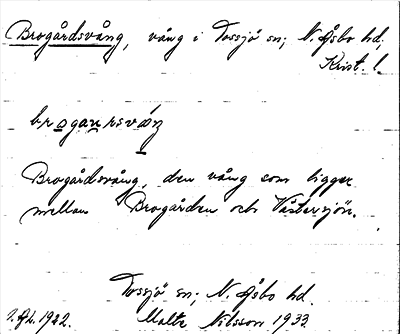 Brogårdsvång, vång i Tossjö sn; N. Åsbo hd,
Krist. l.
Brogårdsvång, den vång som ligger
mellan Brogården och Västersjön.
Tossjö sn. N. Åsbo hd.
1922. Malte Nilsson 1933